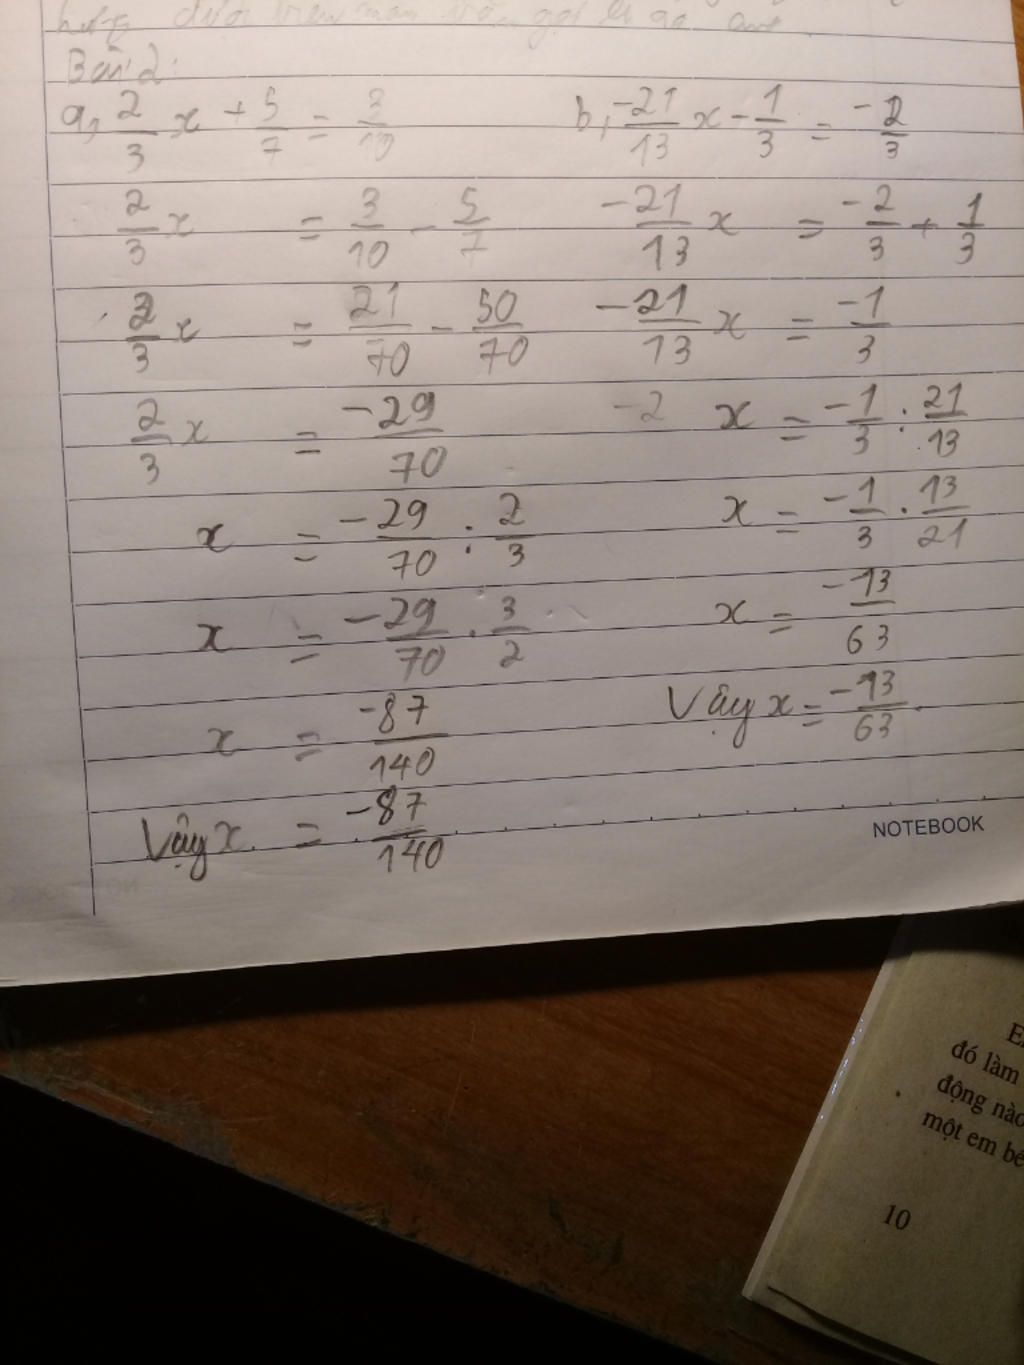 Bài 2:
a, 2/3 x + 5/7 = 3/10
2/3 x = 3/10 - 5/7
2/3 x = 21/70 - 50/70
2/3 x = -29/70
x = -29/70 : 2/3
x = -29/70 . 3/2
x = -87/140
Vậy x = -87/140
b, -21/13 x - 1/3 = -2/3
-21/13 x = -2/3 + 1/3
-21/13 x = -1/3
-2 x = -1/3 : 21/13
x = -1/3 . 13/21
x = -13/63
Vậy x = -13/63.
NOTEBOOK
đó làm
động nào
một em bé
10